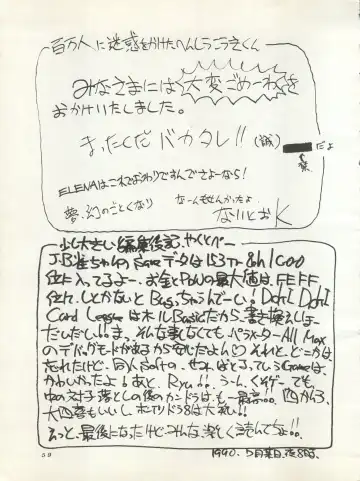 百万人に迷惑をかけたへんしうこうえくん
みなさまには大変ごめーわくを
おかけいたしました。
まったくだバカタレ!! (誠)
だよ
ELENAはこれでおわりですんでさよーなら!
夢、幻のごとくなり
なーんもせんかったよ
ないとおK
少し大きい編集後記 やくとべー
J.B.雀ちゃんのSaveデータは153Tr 8h/C00
位に入ってるよー。お金とPowの最大値は、FEFF
位に、しとかないとBug、ちゃうんでーい! DokI DokI
Card LeagueはホルBasicだから、書き換えしほー
だいだしい!!ま、そんな事しなくても、パラメーターAll Max
のデバッグモードがあるから安心だよん♡それと、どこかは
忘れたけど、同人Softの、
っていうGameは、
かわいかったよ!あと、Ryu!!、うーん、くそゲーでも、
大四喜もいいし
えっと、最後になったけど、みんな、楽しく読んでちょ!!
1990. 5月某日、夜8時
50